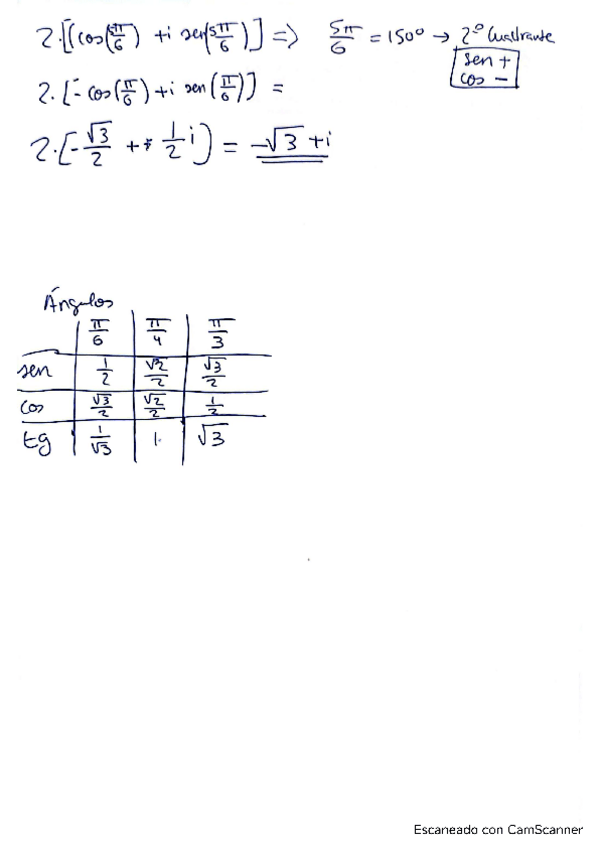 2·[(cos(5π/6) + i sen(5π/6)] => 5π/6 = 150º → 2º Cuadrante
sen +
cos −
2·[-cos(π/6) + i sen(π/6)] =
2·[-√3/2 + 1/2 i] = -√3 + i
Ángulos
π/6 π/4 π/3
sen 1/2 √2/2 √3/2
cos √3/2 √2/2 1/2
tg 1/√3 1 √3
Escaneado con CamScanner